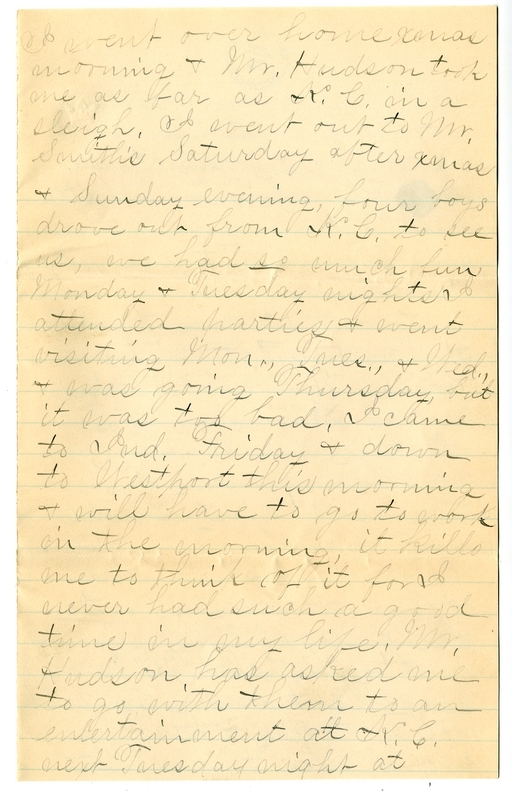 I went over home xmas
morning & Mr. Hudson took
me as far as K. C. in a
sleigh. I went out to Mr.
Smith's Saturday after xmas
& Sunday evening, four boys
drove out from K. C. to see
us, we had so much fun
Monday & Tuesday nights I
attended parties & went
visiting Mon., Tues., & Wed.,
& was going Thursday, but
it was too bad. I came
to Ind. Friday & down
to Westport this morning
& will have to go to work
in the morning, it kills
me to think of it for I
never had such a good
time in my life. Mr.
Hudson has asked me
to go with them to an
entertainment at K. C.
next Tuesday night at